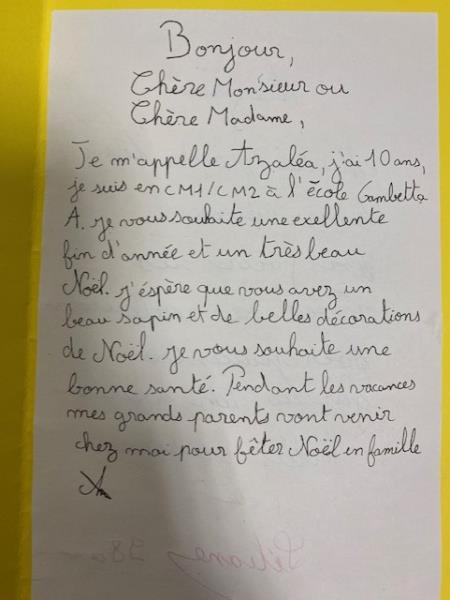 Bonjour,
Chère Monsieur ou
Chère Madame,
Je m'appelle Azaléa, j'ai 10 ans,
je suis en CM1/CM2 à l'école Gambetta
A. je vous souhaite une exellente
fin d'année et un très beau
Noël. j'éspère que vous avez un
beau sapin et de belles décorations
de Noël. je vous souhaite une
bonne santé. Pendant les vacances
mes grands parents vont venir
chez moi pour fêter Noël en famille